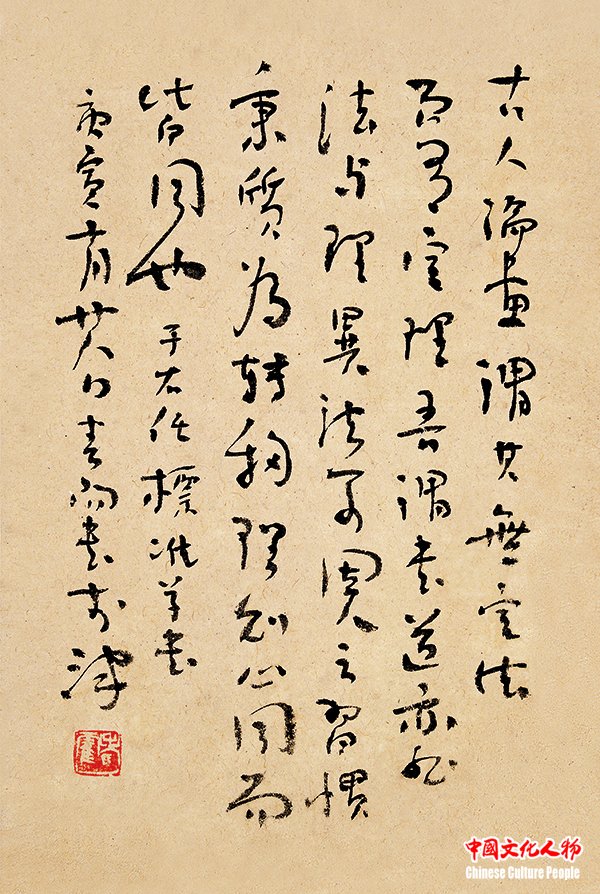 古人論畫謂其無定法
而有定理吾謂書道亦然
法与理異法可因人之習慣
秉質為轉移理則心同而
皆同也 于右任標準草書
庚寅月廿八日書於津
中國文化人物
Chinese Culture People